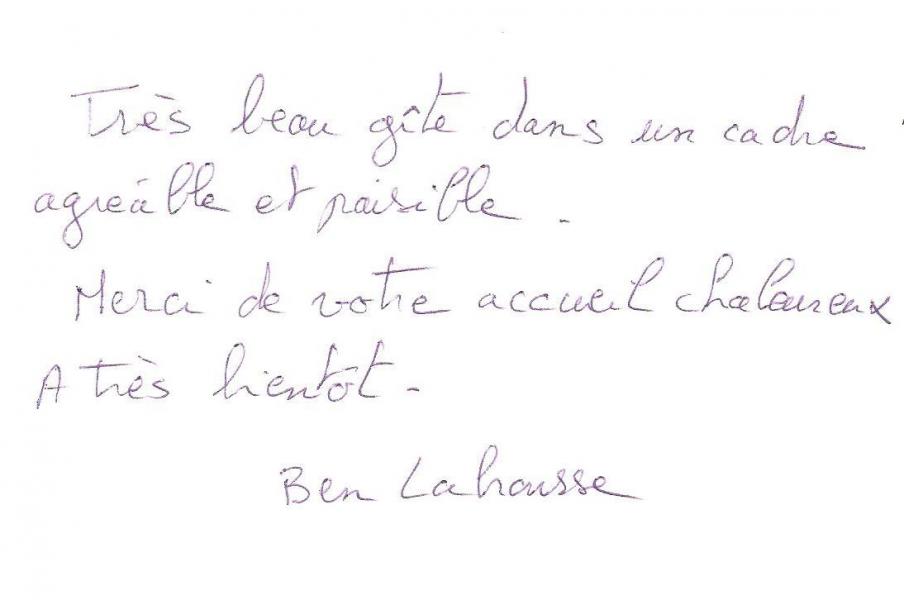 Très beau gîte dans un cadre
agréable et paisible.
Merci de votre accueil chaleureux
A très bientôt.
Ben Lahousse